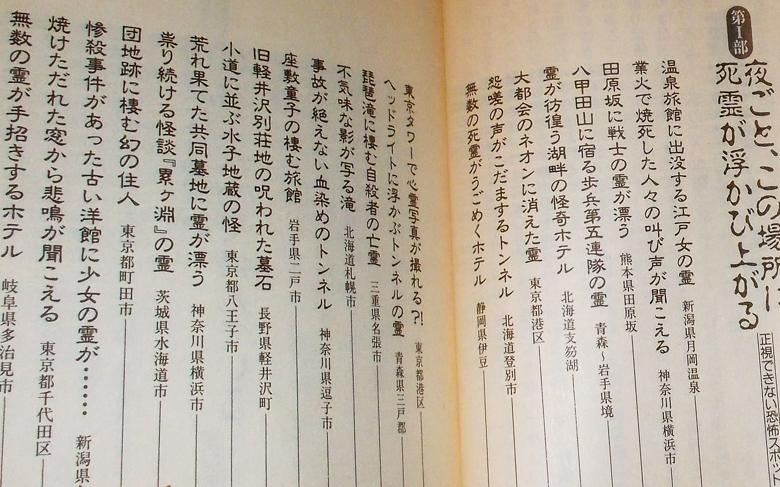 第Ⅰ部
夜ごと、この場所に
死霊が浮かび上がる
正視できない恐怖スポット
温泉旅館に出没する江戸女の霊 新潟県月岡温泉
業火で焼死した人々の叫び声が聞こえる 神奈川県横浜市
田原坂に戦士の霊が漂う 熊本県田原坂
八甲田山に宿る歩兵第五連隊の霊 青森〜岩手県境
霊が彷徨う湖畔の怪奇ホテル 北海道支笏湖
大都会のネオンに消えた霊 東京都港区
怨嗟の声がこだまするトンネル 北海道登別市
無数の死霊がうごめくホテル 静岡県伊豆
東京タワーで心霊写真が撮れる?! 東京都港区
ヘッドライトに浮かぶトンネルの霊 青森県三戸郡
琵琶滝に棲む自殺者の亡霊 三重県名張市
不気味な影が写る滝 北海道札幌市
事故が絶えない血染めのトンネル 神奈川県逗子市
座敷童子の棲む旅館 岩手県二戸市
旧軽井沢別荘地の呪われた墓石 長野県軽井沢町
小道に並ぶ水子地蔵の怪 東京都八王子市
荒れ果てた共同墓地に霊が漂う 神奈川県横浜市
祟り続ける怪談『累ヶ淵』の霊 茨城県水海道市
団地跡に棲む幻の住人 東京都町田市
惨殺事件があった古い洋館に少女の霊が…… 新潟県
焼けただれた窓から悲鳴が聞こえる 東京都千代田区
無数の霊が手招きするホテル 岐阜県多治見市